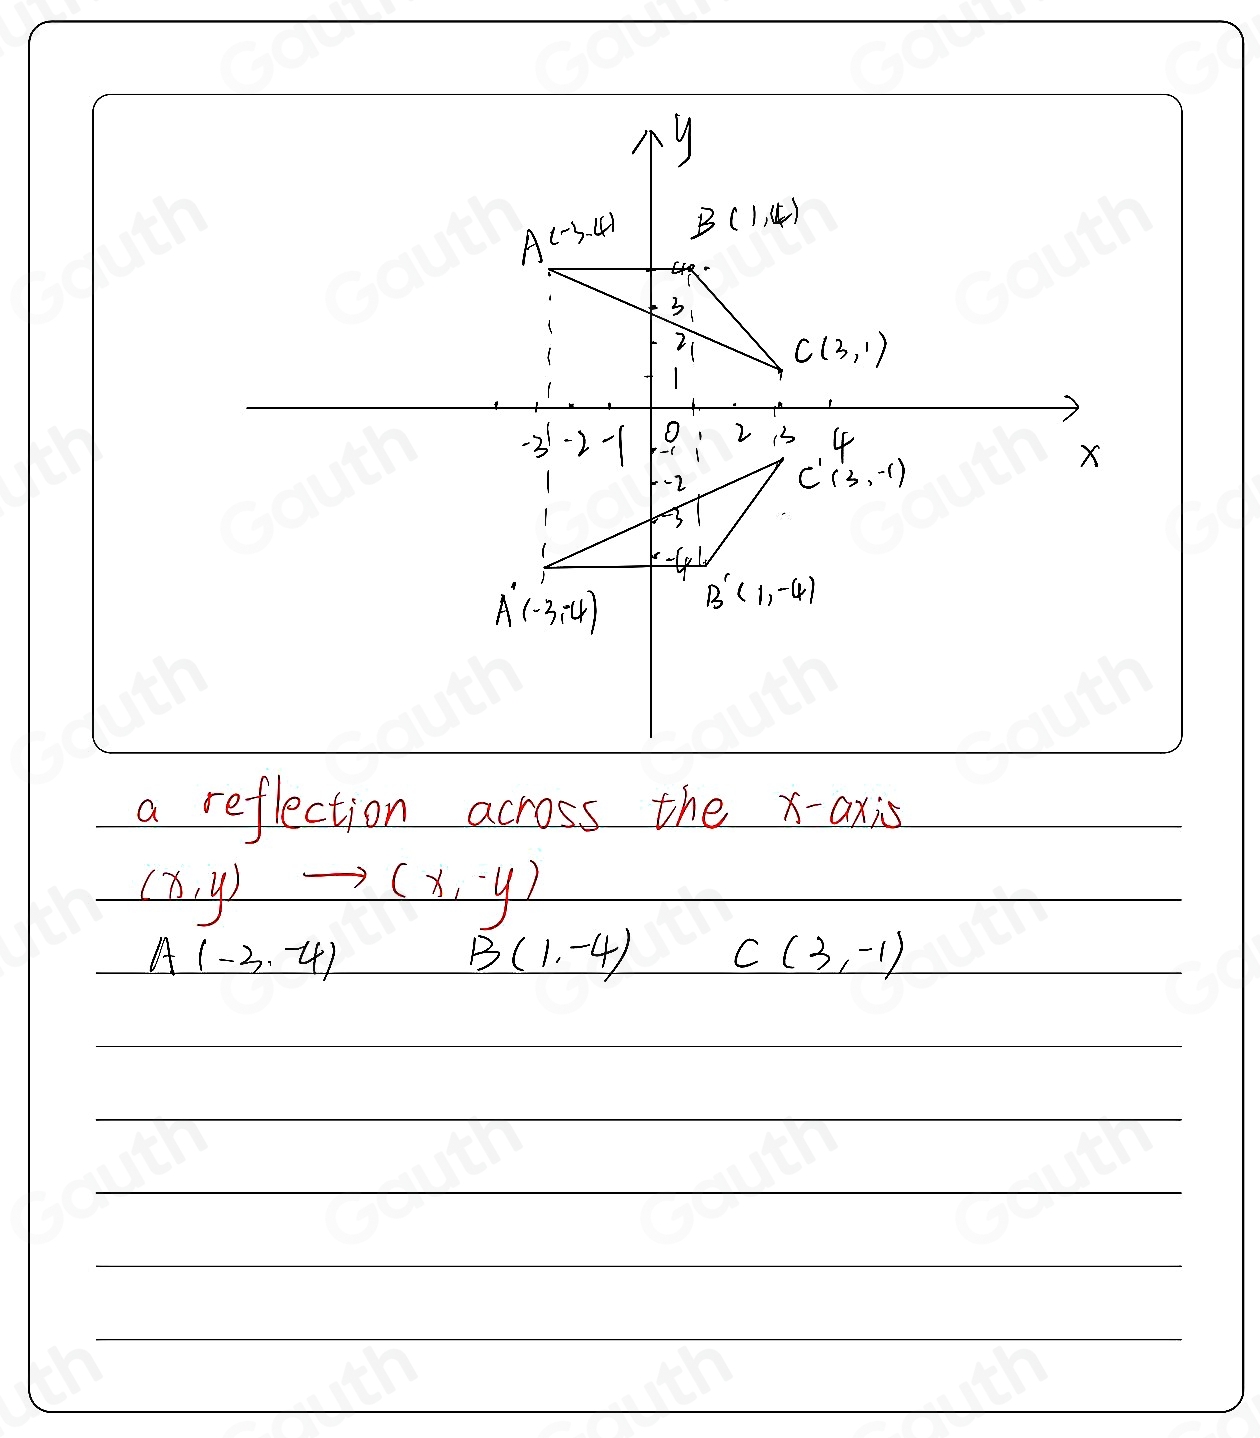 y
A(-3,4)
B(1,4)
4
3
C(3,1)
2
1
-3 -2 -1 0 1 2 3 4
x
-1
C'(3,-1)
-2
-3
-4
A'(-3,-4)
B'(1,-4)
a reflection across the x-axis
(x,y) → (x,-y)
A(-3,-4) B(1,-4) C(3,-1)
Gauth